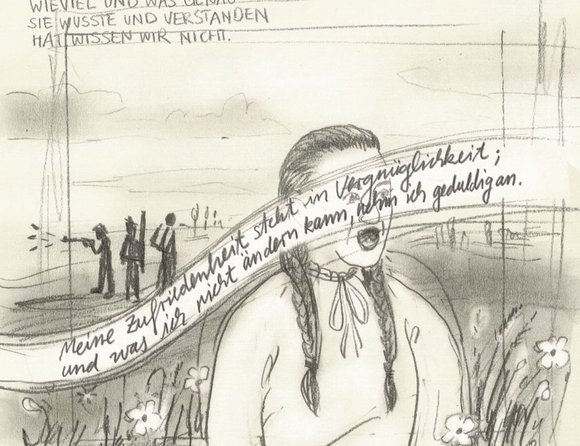 WIEVIEL UND WAS GENAU
SIE WUSSTE UND VERSTANDEN
HAT WISSEN WIR NICHT.
Meine Zufriedenheit steht in Vergnüglichkeit;
und was ich nicht ändern kann, nehm ich geduldig an.